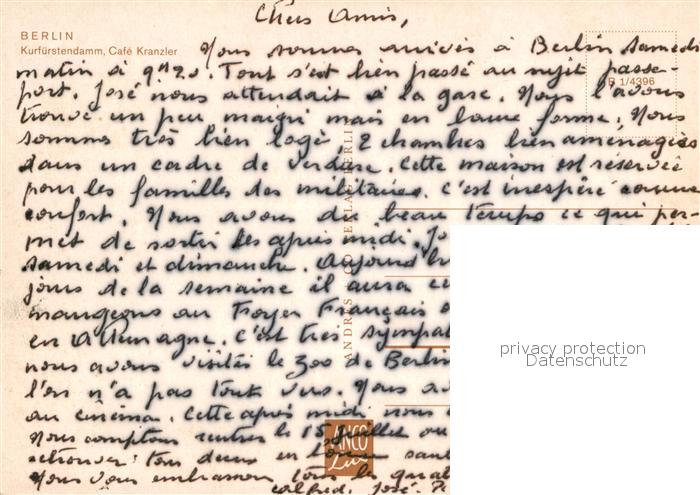 Chers Amis,
BERLIN
Kurfürstendamm, Café Kranzler
Nous sommes arrivés à Berlin samedi
matin à 9h20. Tout s'est bien passé au sujet passe-
R 1/4396
port. José nous attendait à la gare. Nous l'avons
trouvé un peu maigri mais en bonne forme. Nous
sommes très bien logé, 2 chambres bien aménagées
dans un cadre de verdure. Cette maison est réservée
pour les familles des militaires. C'est inespéré comme
confort. Nous avons du beau temps ce qui per-
met de sortir les après midi.
samedi et dimanche. Aujourd'hui
jours de la semaine il aura
mangeons au Foyer Français
en Allemagne. C'est très sympat
nous avons visités le zoo de Berlin
l'on n'a pas tout vus. Nous
au cinéma. Cette après midi nous
Nous comptons rentrer le 15 juillet ou
retrouver tous deux en bonne santé
Nous vous embrassons tous les quatre
Alfred. José.
ANDRES + CO VERLAG BERLIN
ANCO
privacy protection
Datenschutz